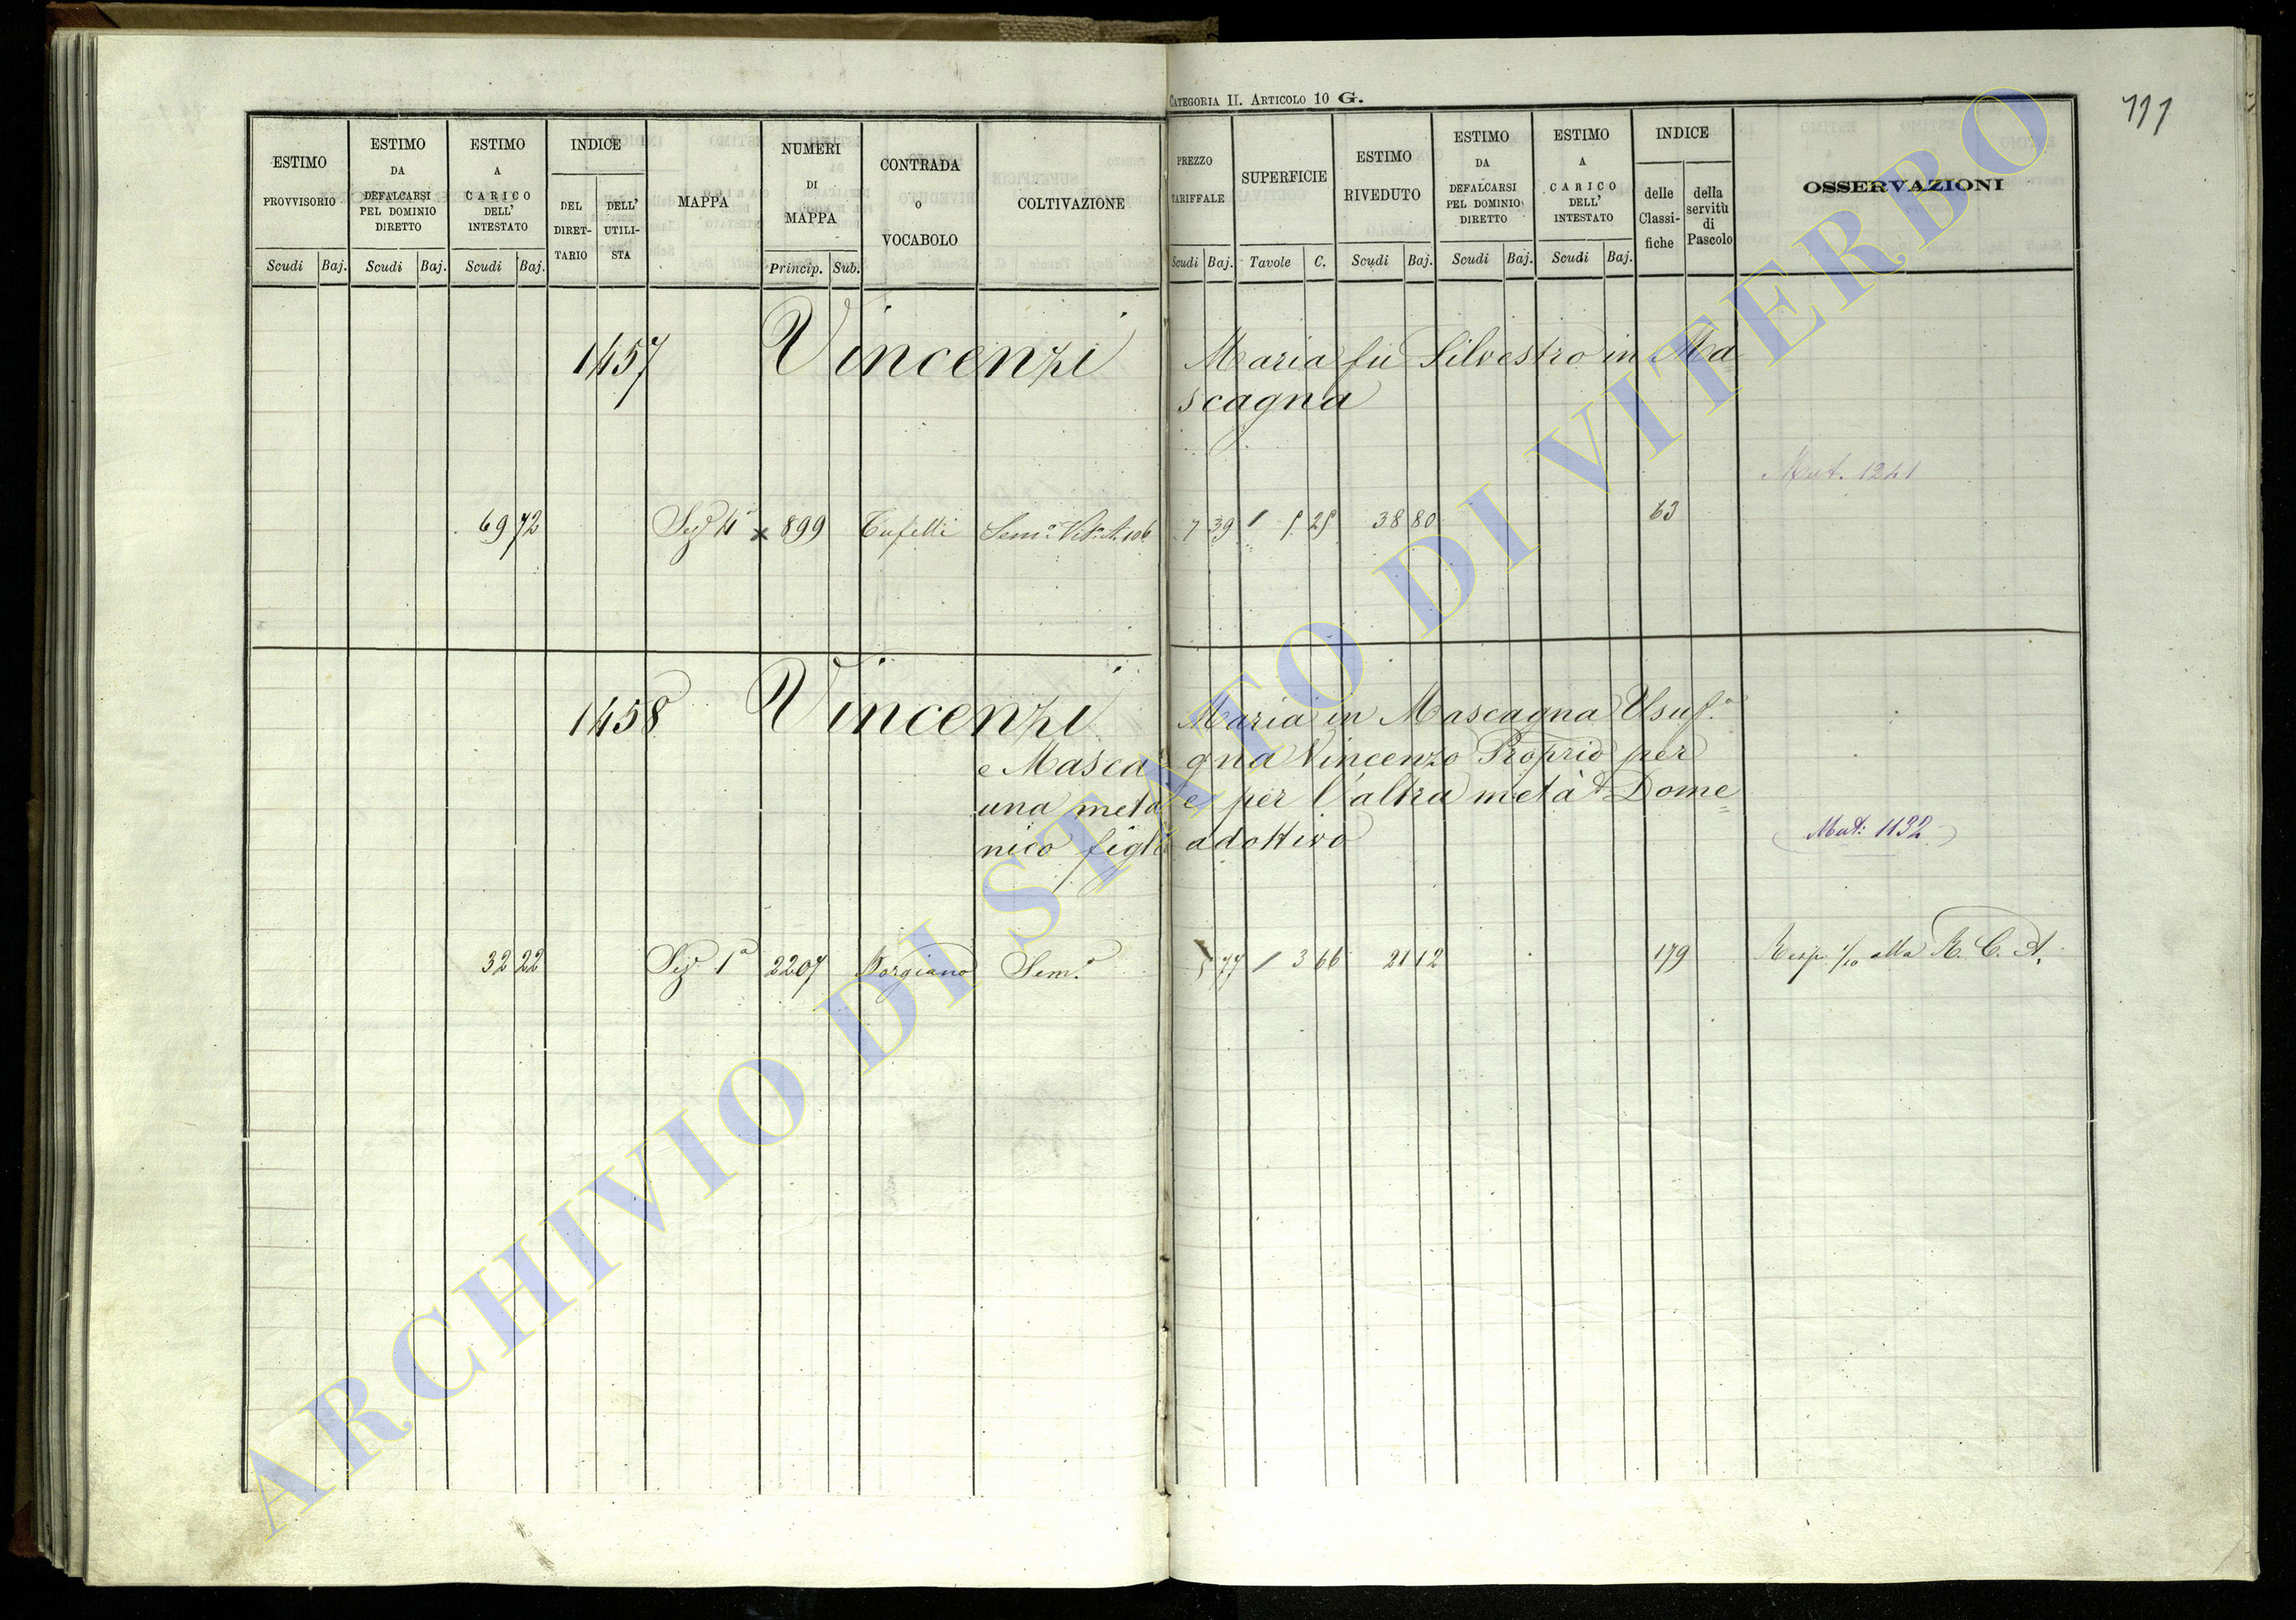 CATEGORIA II. ARTICOLO 10 G.
777
ESTIMO PROVVISORIO Scudi Baj.
ESTIMO DA DEFALCARSI PEL DOMINIO DIRETTO Scudi Baj.
ESTIMO A CARICO DELL' INTESTATO Scudi Baj.
INDICE DEL DIRET-TARIO DELL' UTILI-STA
MAPPA
NUMERI DI MAPPA Princip. Sub.
CONTRADA O VOCABOLO
COLTIVAZIONE
PREZZO TARIFFALE Scudi Baj.
SUPERFICIE Tavole C.
ESTIMO RIVEDUTO Scudi Baj.
ESTIMO DA DEFALCARSI PEL DOMINIO DIRETTO Scudi Baj.
ESTIMO A CARICO DELL' INTESTATO Scudi Baj.
INDICE delle Classi-fiche della servitù di Pascolo
OSSERVAZIONI
1457 Vincenzi Maria fu Silvestro in Ma=
scagna
Mut. 1241
69 72 Sez. 4ª x 899 Tufelli Sem.º Vit.º A. 106 7 39 / 5 25 38 80 63
1458 Vincenzi Maria in Mascagna Usuf.ª
e Mascagna Vincenzo Proprio per
una metà e per l'altra metà Dome=
nico figli adottivo
Mut: 1132
32 22 Sez. 1ª 2207 Norgiano Sem.º 5 77 / 3 66 21 12 179 Resp. 1/10 alla R. C. A.
ARCHIVIO DI STATO DI VITERBO